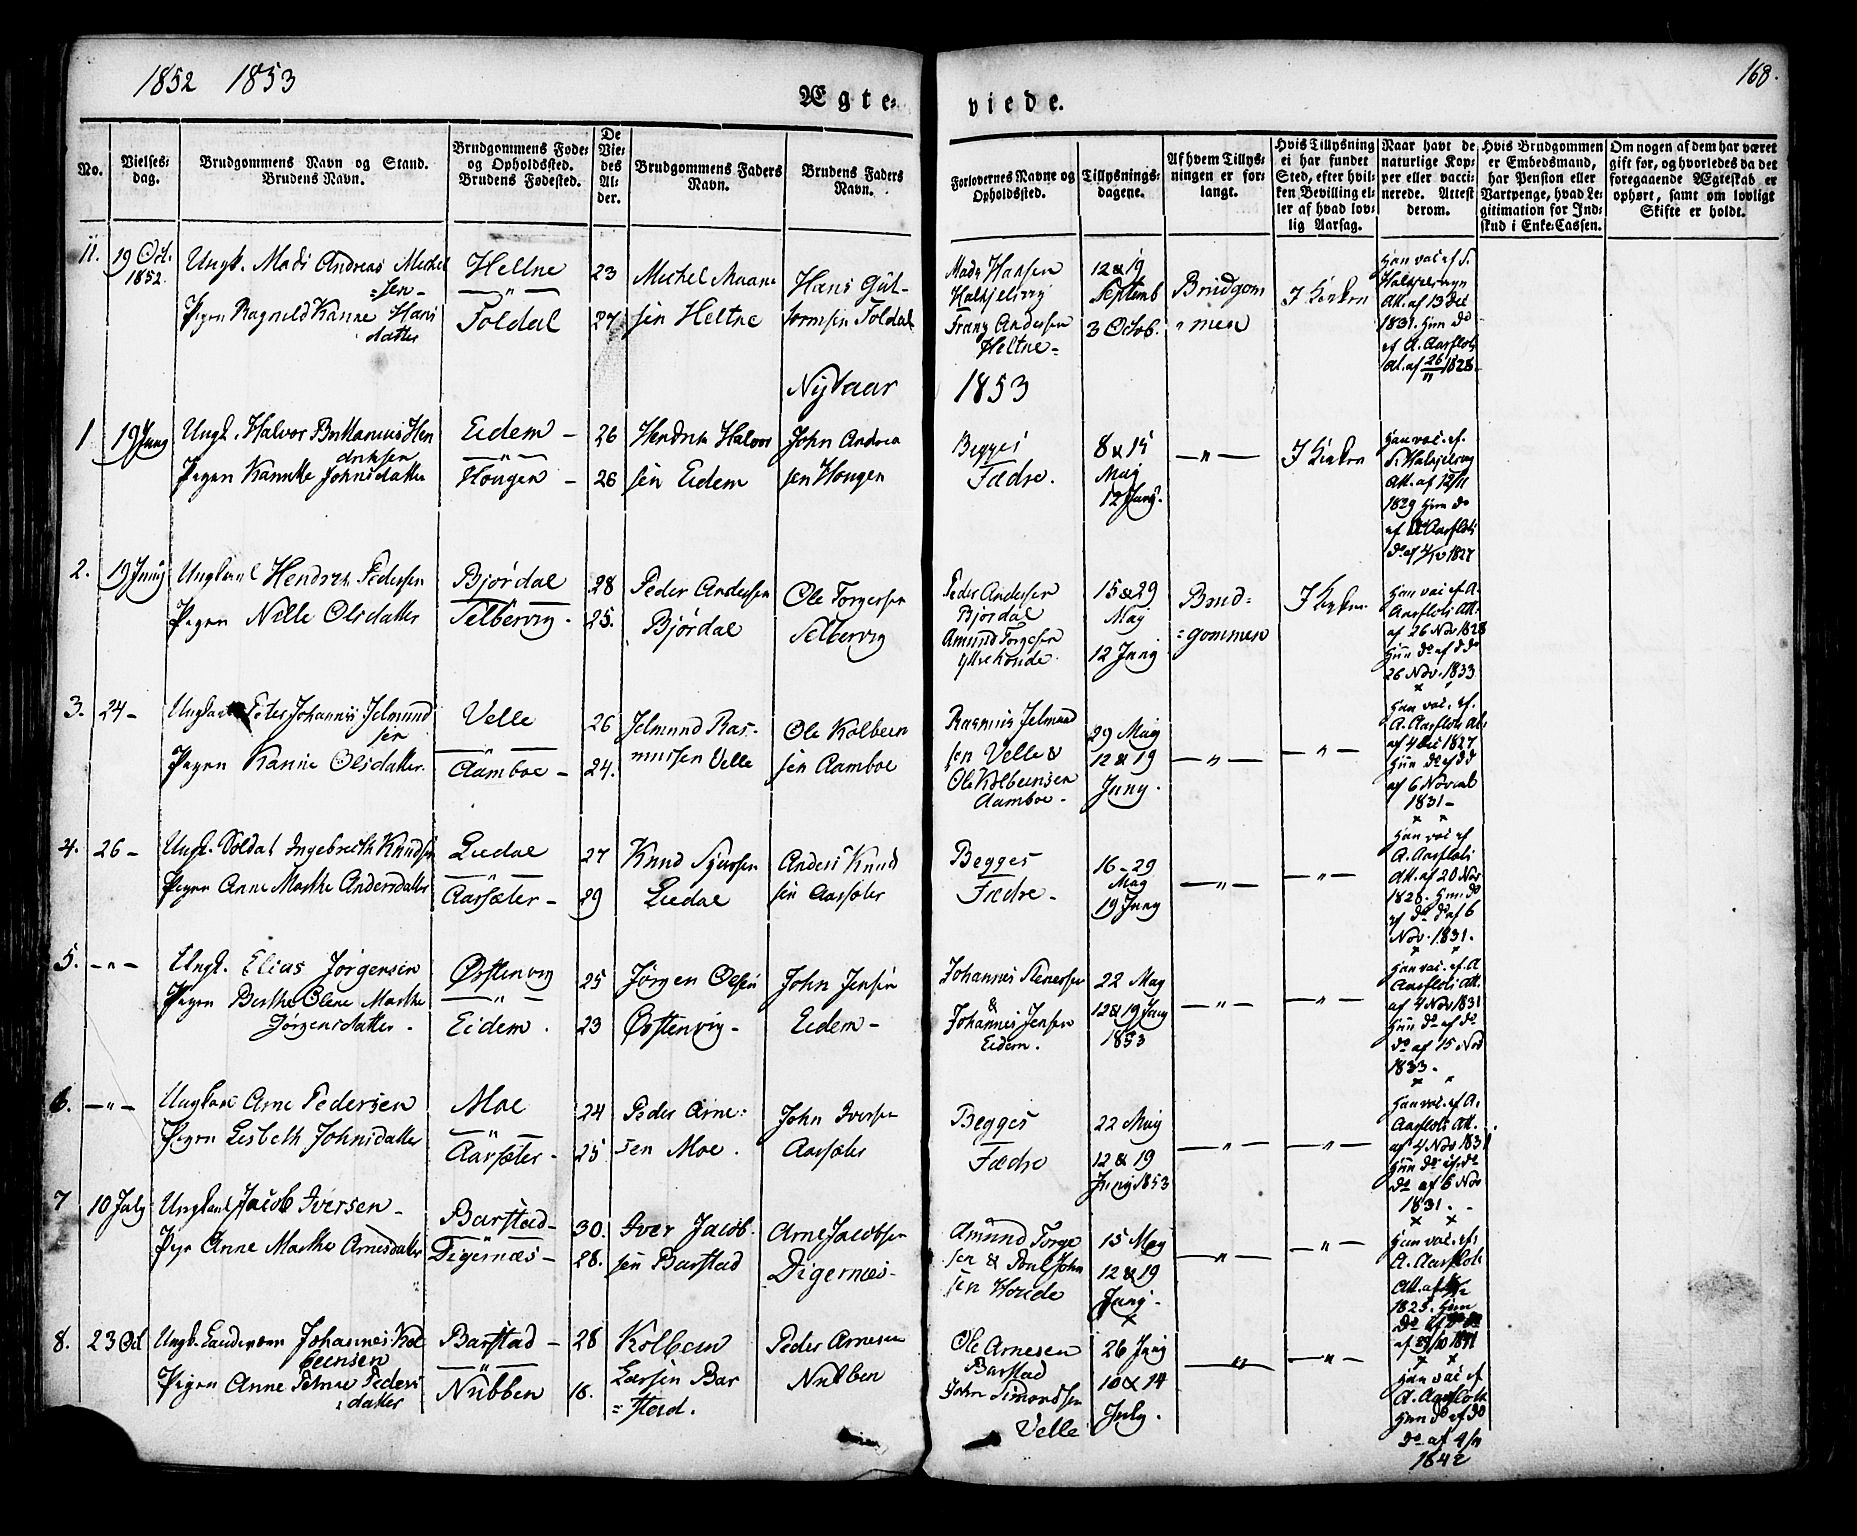 1852 1853
168.
Ægte-
viede.
No.
Vielses-
dag.
Brudgommens Navn og Stand.
Brudens Navn.
Brudgommens Føde-
og Opholdssted.
Brudens Fødested.
De
Vie-
des
Al-
der.
Brudgommens Faders
Navn.
Brudens Faders
Navn.
Forlovernes Navne og
Opholdssted.
Tillysnings-
dagene.
Af hvem Tillys-
ningen er for-
langt.
Hvis Tillysning
ei har fundet
Sted, efter hvil-
ken Bevilling el-
ler af hvad lov-
lig Aarsag.
Naar havt de
naturlige Kop-
per eller vacci-
nerede. Attest
derom.
Hvis Brudgommen
er Embedsmand,
har Pension eller
Vartpenge, hvad Le-
gitimation for Ind-
skud i Enke-Cassen.
Om nogen af dem har været
gift før, og hvorledes da det
foregaaende Ægteskab er
ophørt, samt om lovligt
Skifte er holdt.
11.
19 Oct.
1852.
Ungk. Mads Andreas Mickel
=sen-
Pigen Ragnild Kanne Hans
datter
Heltne
— " —
Foldal
23
27
Mickel Maane
sen Heltne
Hans Gut-
tormsen Foldal
Mads Hansen
Halkjelsvig
Franz Andersen
Heltne-
12 & 19
Septemb
3 Octob.
Brudgom
" men
I Kirken
Han vac. af S.
Halkjelsvign
Att. af 13 Oct
1831. Hun do
af A. Aarflots
At. af 26/11 1828-
Nytaar
1853
1
19 Juny
Ungk. Halvor Hen
driksen
Pigen Johnsdatter
Eidem -
— " —
Hougen -
26
26
Hendrik Halvor
sen Eidem
John Andrea
sen Hougen
Begges
Fædre.
8 & 15
May
12 Juny.
— " —
I Kirken
Han vac. af.
S. Halkjelsvig
Att. af 12/11
1829 Hun do
af A. Aarflots
do af 4/10 1827
2.
19 Juny
Ungkarl Hendrik Pedersen
Pigen Nille Olsdatter
Bjørdal
Selbervig.
28
25.
Peder Andersen
Bjørdal
Ole Torgersen
Selbervig
Peder Andersen
Bjørdal
Amund Torgersen
Yttrehoude.
15 & 29
May
12 Juny
Brud-
=gommen
I Kirken.
Han vac. af A.
Aarflots Att.
af 26 Nov 1828
Hun do af do do
26 Nov. 1833
3.
24 -
Ungkarl Peter Johannes Jelmund
sen
Pigen Kanne Olsdatter.
Velle
— " —
Aamboe -
26
24.
Jelmund Ras-
mussen Velle
Ole Kolbeen
sen Aamboe
Rasmus Jelmund
sen Velle &
Ole Kolbeensen
Aamboe -
29 May
12 & 19
Juny.
— " —
— " —
Han vac. af.
A. Aarflots At.
af 4 Dec 1827
Hun do af do
af 6 Novbr
1831 -
4.
26 -
Ungk. Soldat Ingebreth Knudsen
Pigen Anne Marthe Andersdatter
Liedal
— " —
Aarsæter -
27
29
Knud Sjursen
Liedal
Anders Knud
sen Aarsæter
Begges
Fædre -
16 - 29
May
19 Juny
— " —
— " —
Han vac af
A. Aarflots
Att. af 20 Nov
1828. Hun do
af do do af 6
Nov. 1831.
5.
— " —
Ungk. Elias Jørgensen
Pigen Berthe Oline Marthe
Jørgensdatter -
Østenvig
— " —
Eidem.
25
23
Jørgen Olsen
Østenvig -
John Jensen
Eidem -
Johannes Stenersen
&
Johannes Jensen
Eidem.
22 May
12 & 19 Juny
1853
— " —
— " —
Han vac. af. A
Aarflots Att.
af 4 Nov 1831
Hun do af do
do af 15 Nov
1833.
6.
— " —
Ungkarl Arne Pedersen
Pigen Lisbeth Johnsdatter
Moe
— " —
Aarsæter -
24
25
Peder Arne-
sen Moe.
John Iversen
Aarsæter
Begges
Fædre
22 May
12 & 19
Juny 1853
— " —
— " —
Han vac. af A.
Aarflots Att.
af 4 Nov 1831.
Hun do af do
do af 6 Nov
1831. -
7
10 July
Ungkarl Jacob Iversen -
Pige Anne Marthe Arnesdatter
Barstad -
— " —
Digernæs -
30.
28.
Iver Jacob.
sen Barstad
Arne Jacobsen
Digernæs -
Amund Torge
sen & Poul John
sen Houde
15 May
12 & 19
Juny -
— " —
— " —
Han vac. af.
A. Aarflots
Att. af
1825. Hun
8.
23 Oct
Ungk. Landværn Johannes Kol
beensen
Pigen Anne Petrine Peders
datter
Barstad -
— " —
Nubben
28
18.
Kolbeen
Larsen Bar
=stad.
Peder Arnesen
Nubben
Ole Arnesen
Barstad
John Simondsen
Velle
26 Juny
10 & 14
July.
— " —
— " —
Han vac af
A. Aarfloth
Hun do af do
do af 4/11
1842